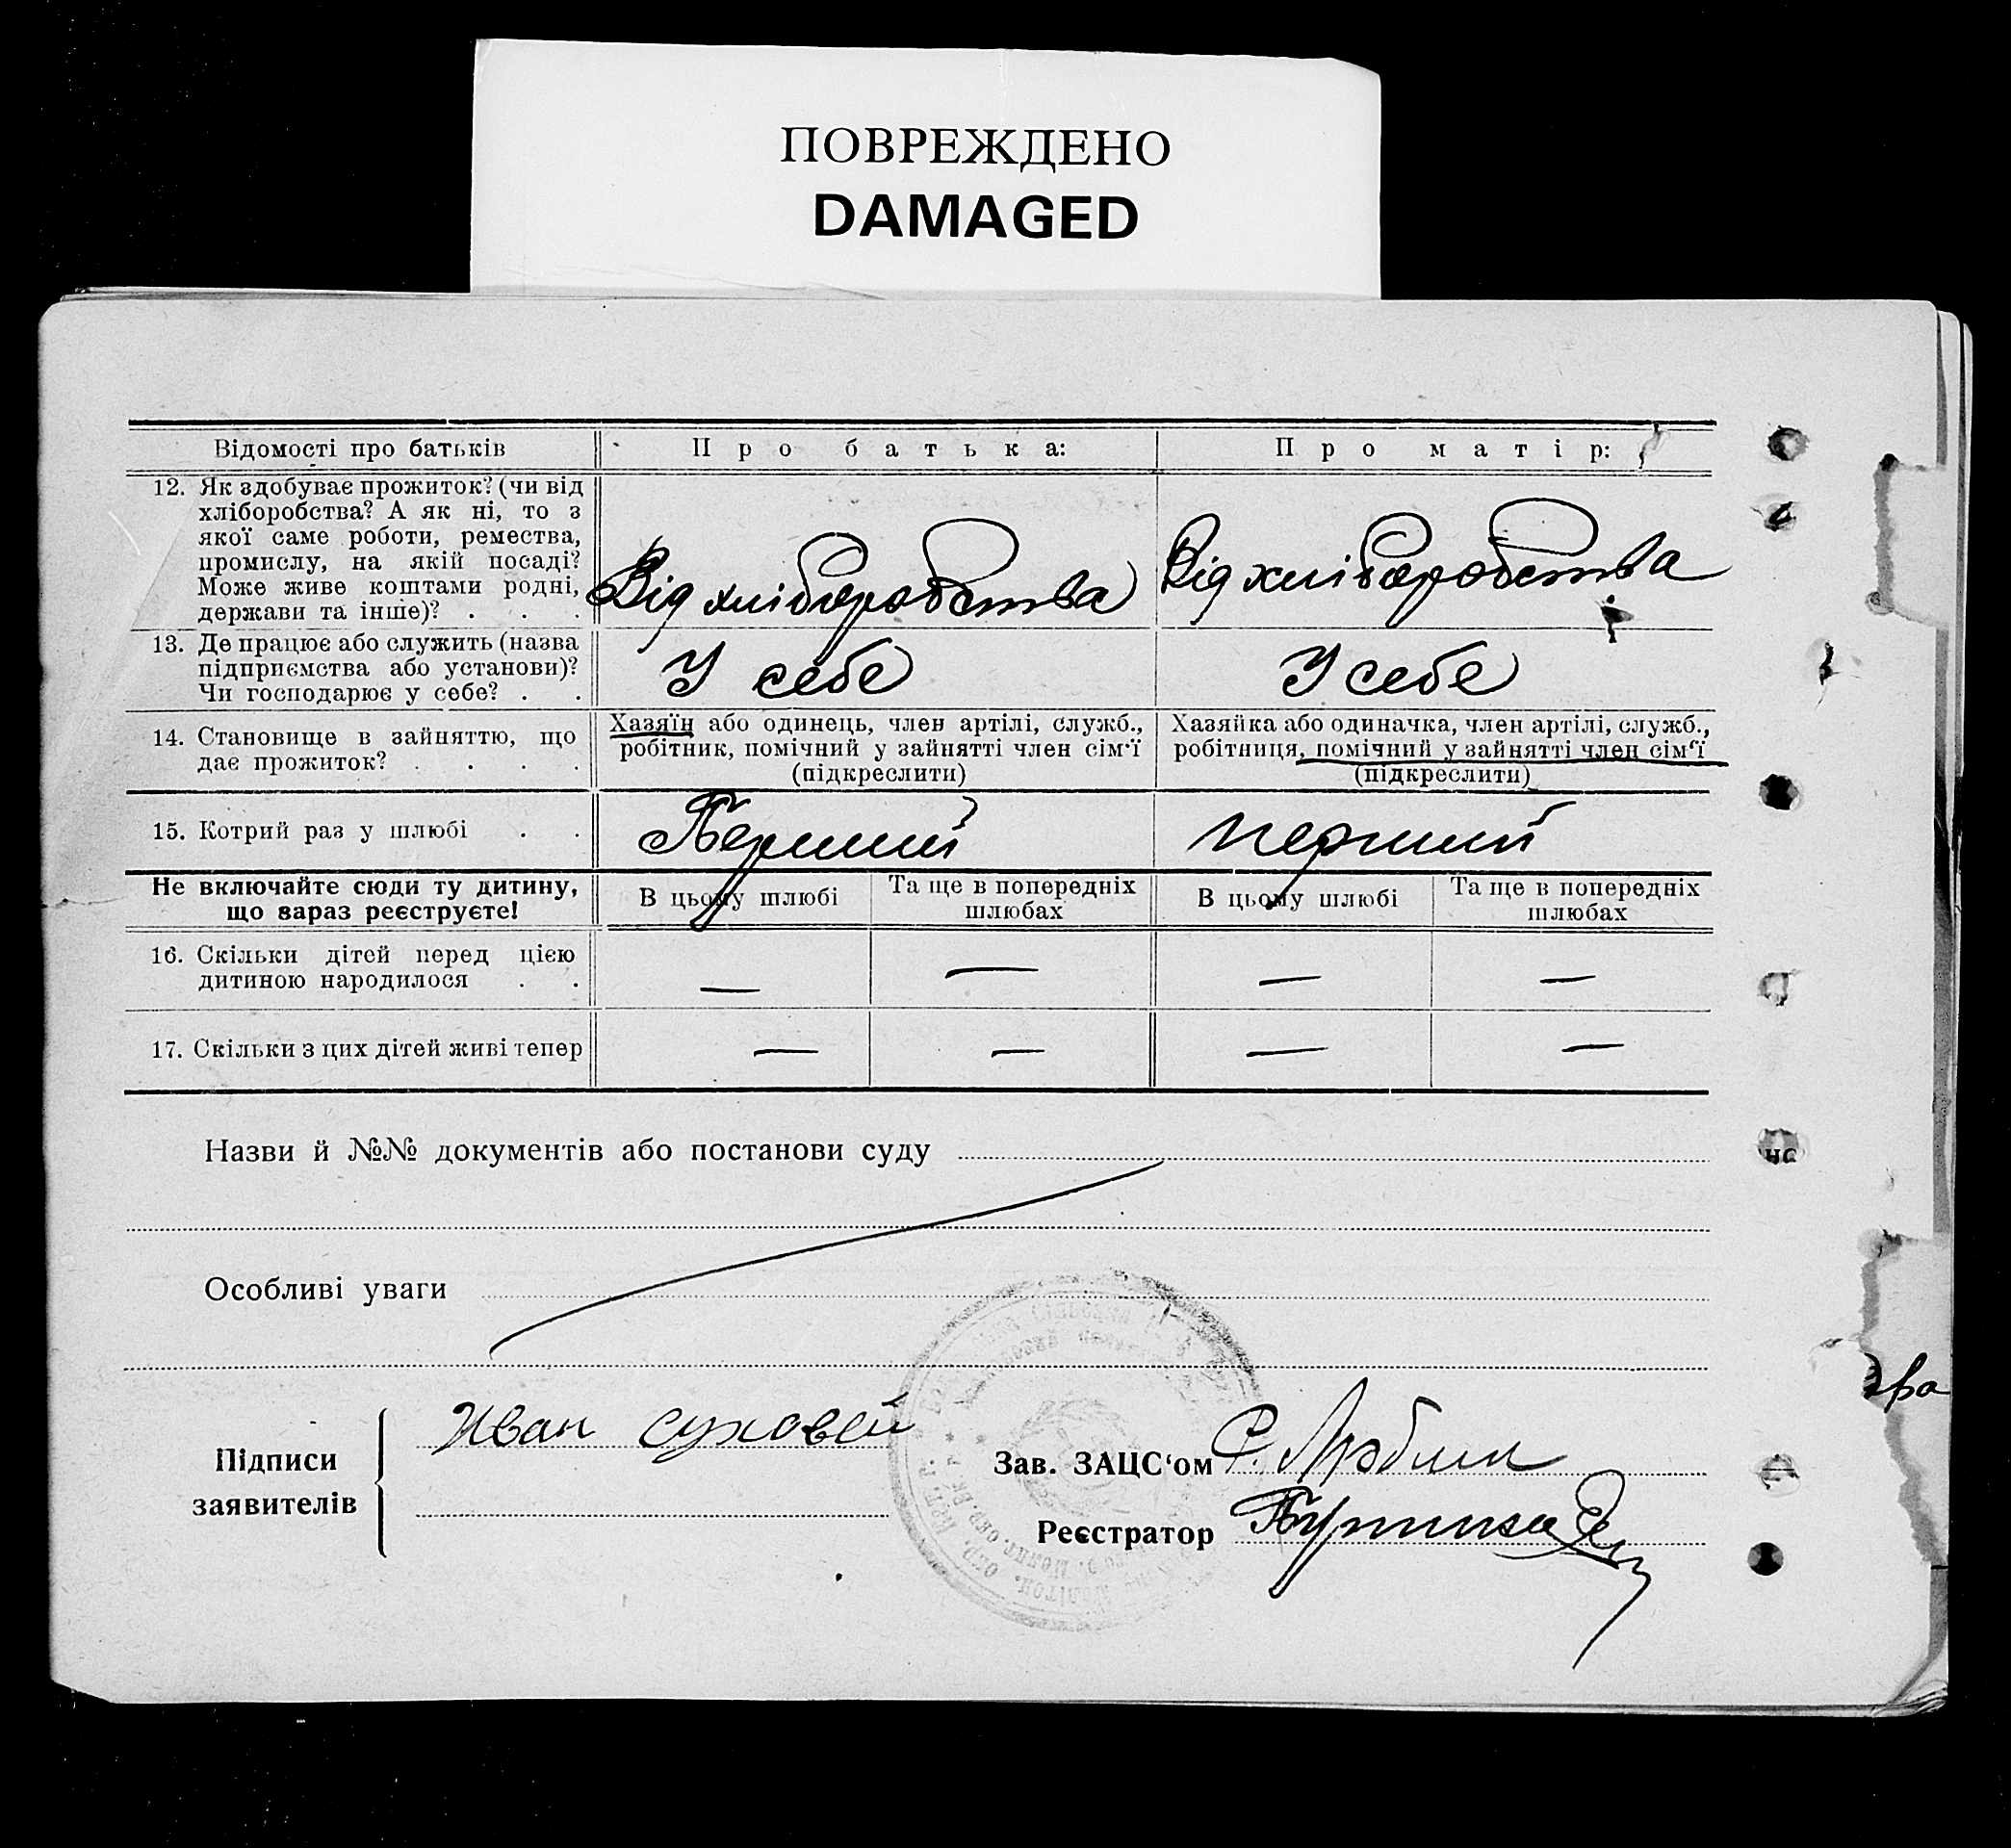 ПОВРЕЖДЕНО
DAMAGED
Відомості про батьків
Про батька:
Про матір:
12. Як здобуває прожиток? (чи від
хліборобства? А як ні, то з
якої саме роботи, ремества,
промислу, на якій посаді?
Може живе коштами родні,
держави та інше)? . . .
Від хліборобства
Від хліборобства
13. Де працює або служить (назва
підприємства або установи)?
Чи господарює у себе? . .
У себе
У себе
14. Становище в зайняттю, що
дає прожиток? . . . .
Хазяїн або одинець, член артілі, служб.,
робітник, помічний у зайнятті член сім'ї
(підкреслити)
Хазяйка або одиначка, член артілі, служб.,
робітниця, помічний у зайнятті член сім'ї
(підкреслити)
15. Котрий раз у шлюбі . .
Перший
перший
Не включайте сюди ту дитину,
що зараз реєструєте!
В цьому шлюбі
Та ще в попередніх
шлюбах
В цьому шлюбі
Та ще в попередніх
шлюбах
16. Скільки дітей перед цією
дитиною народилося . .
— — — —
17. Скільки з цих дітей живі тепер
— — — —
Назви й №№ документів або постанови суду
Особливі уваги
Підписи
заявителів
Иван Суховей
Зав. ЗАЦС'ом
Реєстратор